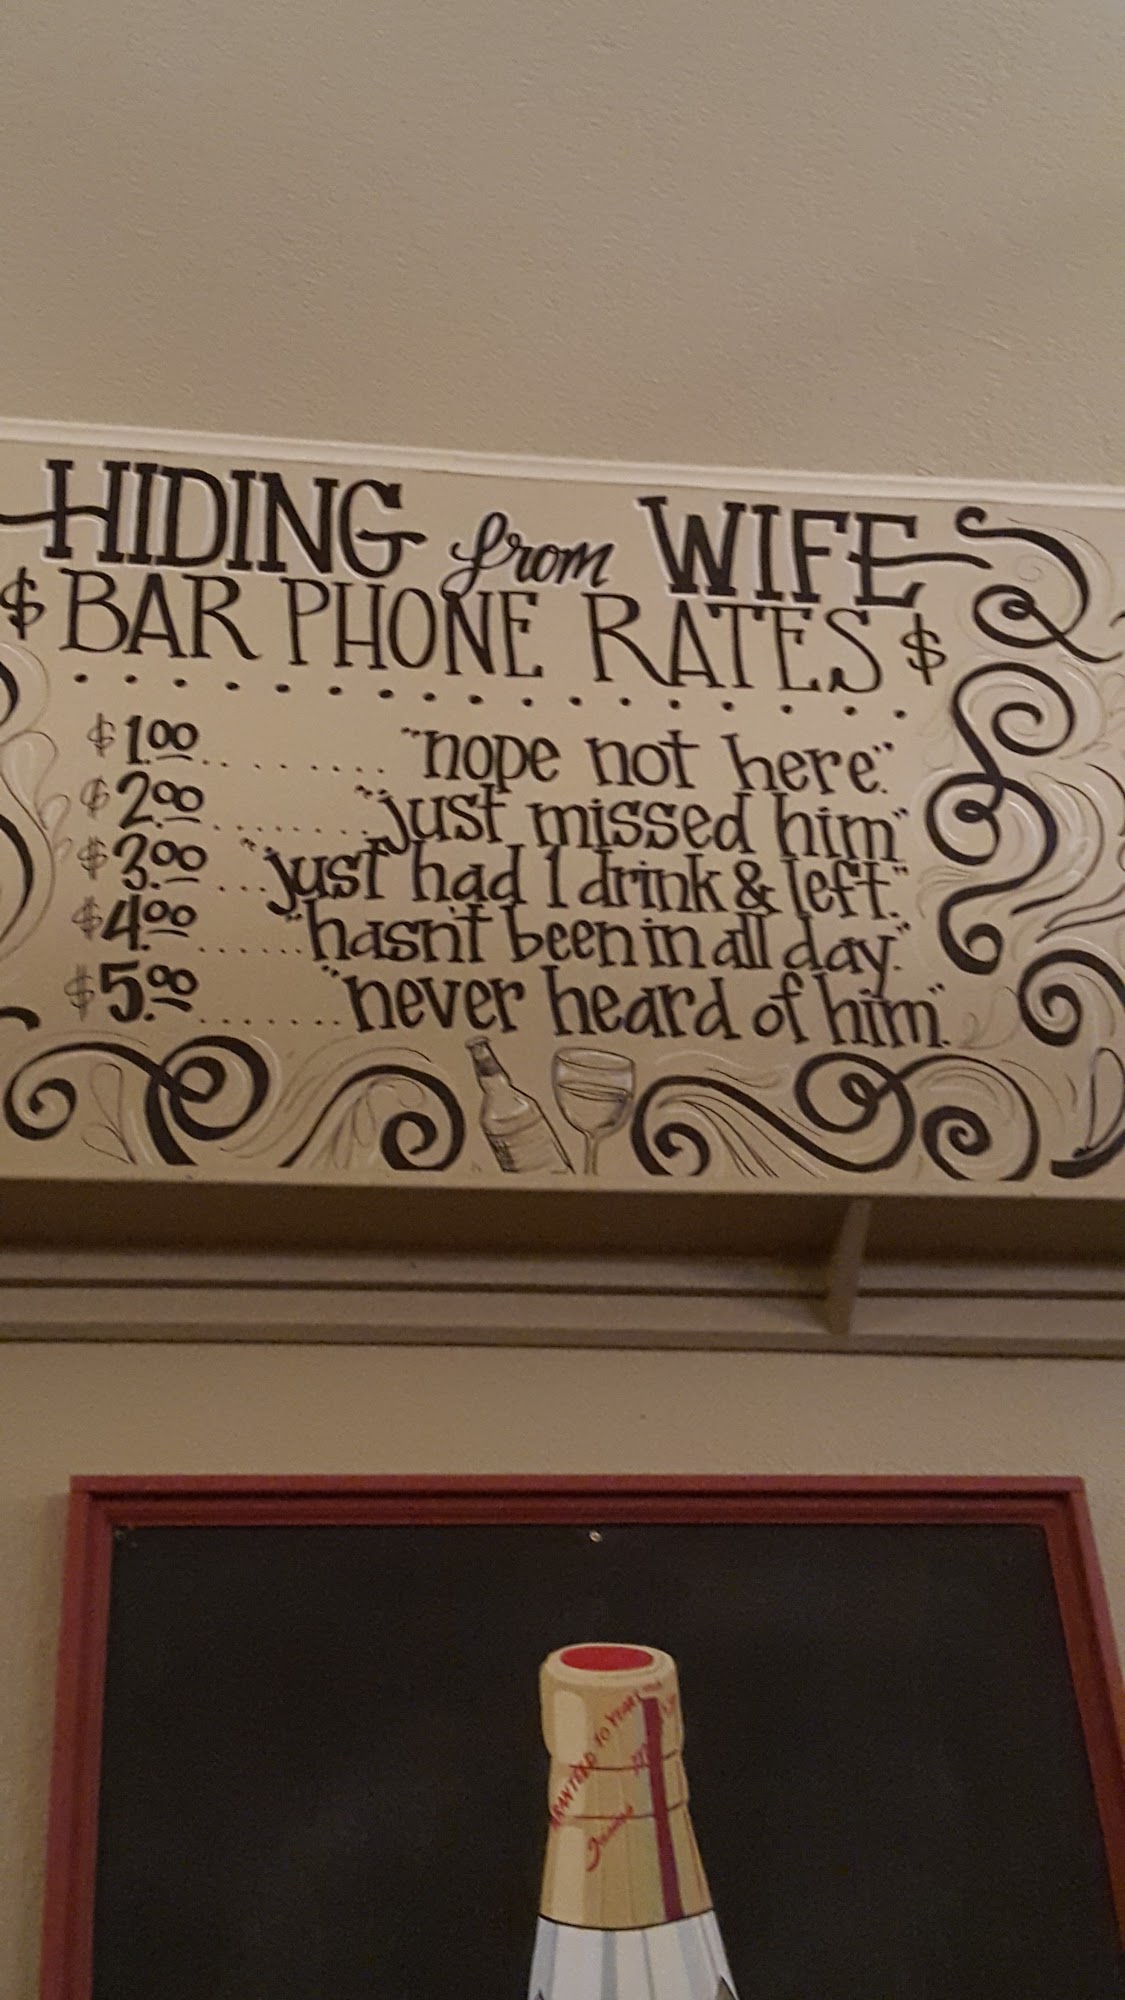 HIDING from WIFE
$ BAR PHONE RATES $
$1.00 ......... "nope not here."
$2.00 ........ "just missed him"
$3.00 ... "just had 1 drink & left."
$4.00 ...... "hasn't been in all day."
$5.00 ....... "never heard of him".
RANTEED 10 YEARS